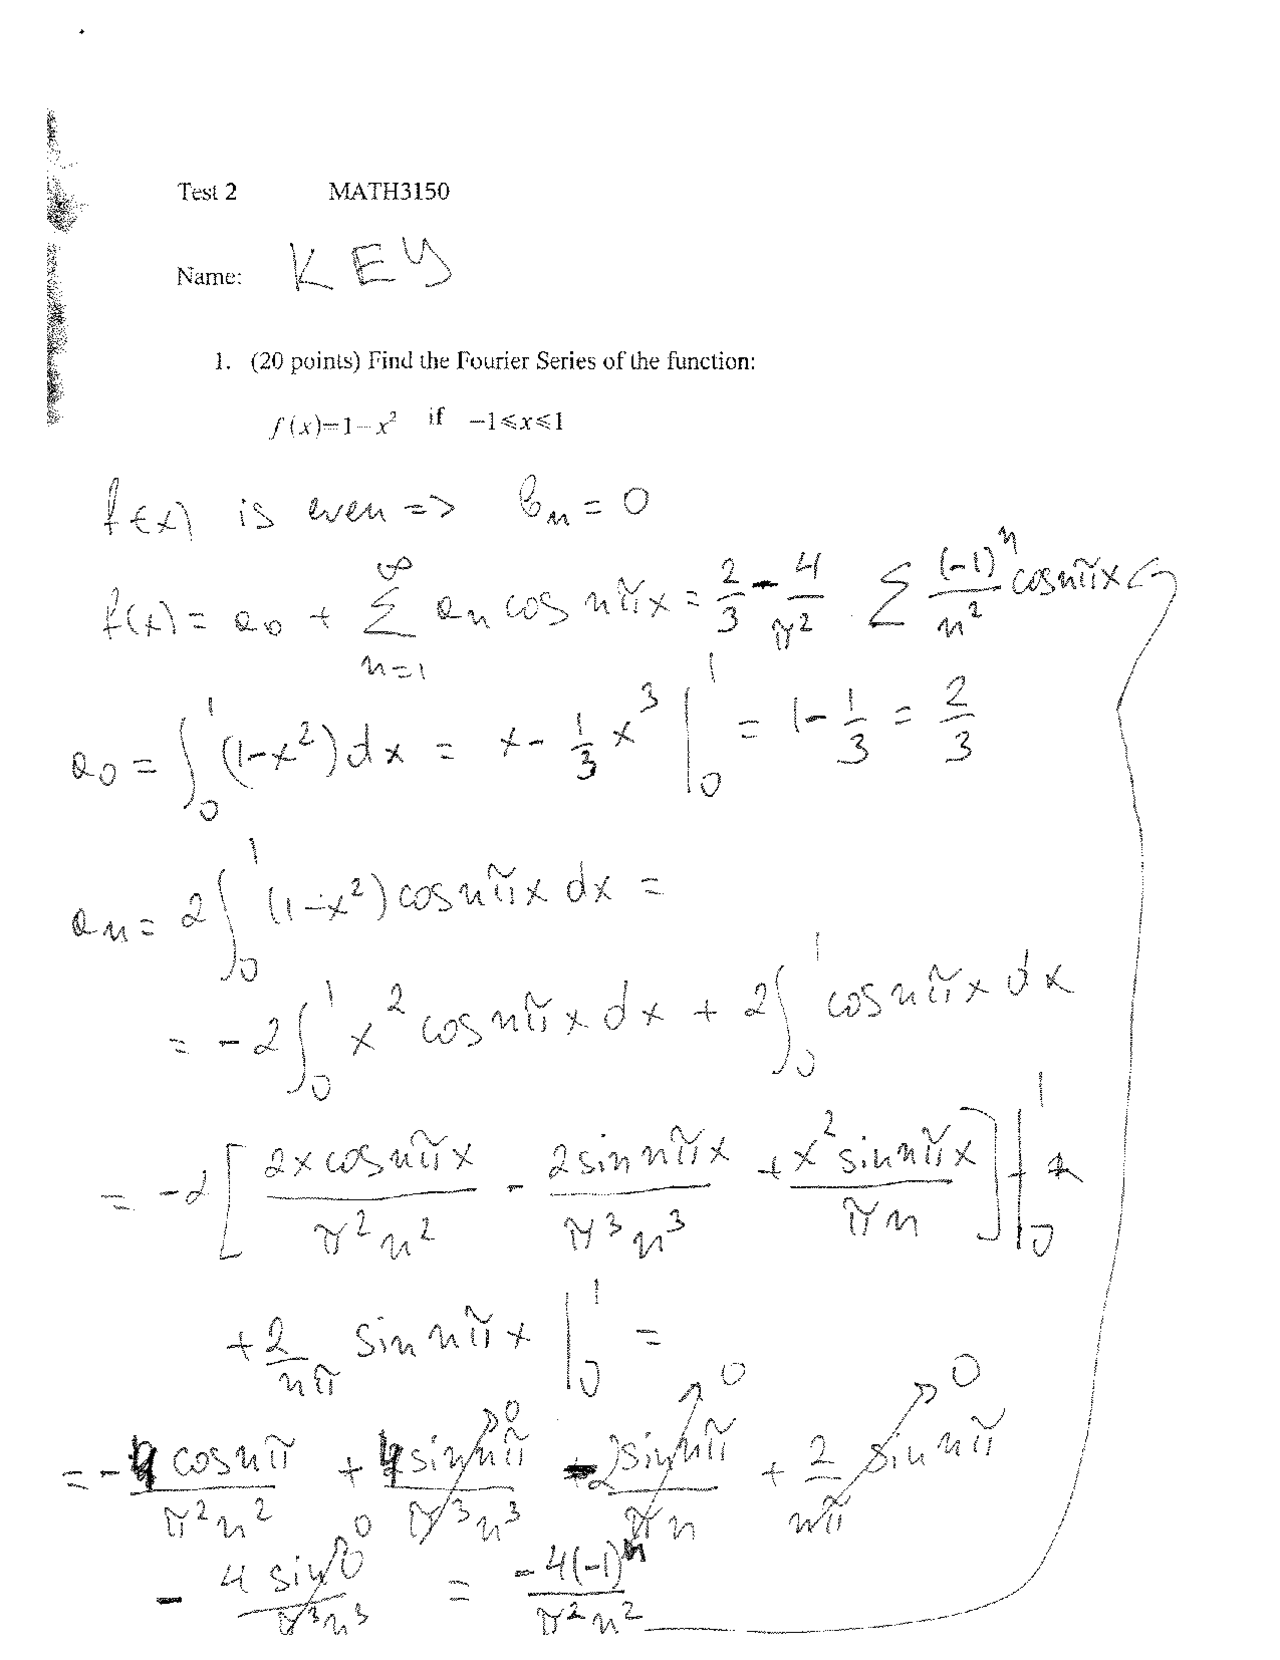 Test 2 MATH3150
Name: KEY
1. (20 points) Find the Fourier Series of the function:
f(x)=1−x² if −1⩽x⩽1
f(x) is even => bₙ = 0
f(x) = a₀ + ∑_{n=1}^{∞} aₙ cos nπx = 2/3 - 4/π² · ∑ (-1)ⁿ/n² cos nπx
a₀ = ∫₀¹ (1-x²) dx = x - 1/3 x³ |₀¹ = 1 - 1/3 = 2/3
aₙ = 2∫₀¹ (1-x²) cos nπx dx =
= -2∫₀¹ x² cos nπx dx + 2∫₀¹ cos nπx dx
= -2[ 2x cos nπx / π²n² - 2 sin nπx / π³n³ + x² sin nπx / πn ]|₀¹ +
+ 2/nπ sin nπx |₀¹ =
= - 4 cos nπ / π²n² + 4 sin nπ / π³n³ → 0 - 2 sin nπ / πn → 0 + 2/nπ sin nπ → 0
- 4 sin 0 / π³n³ → 0 = -4(-1)ⁿ / π²n²